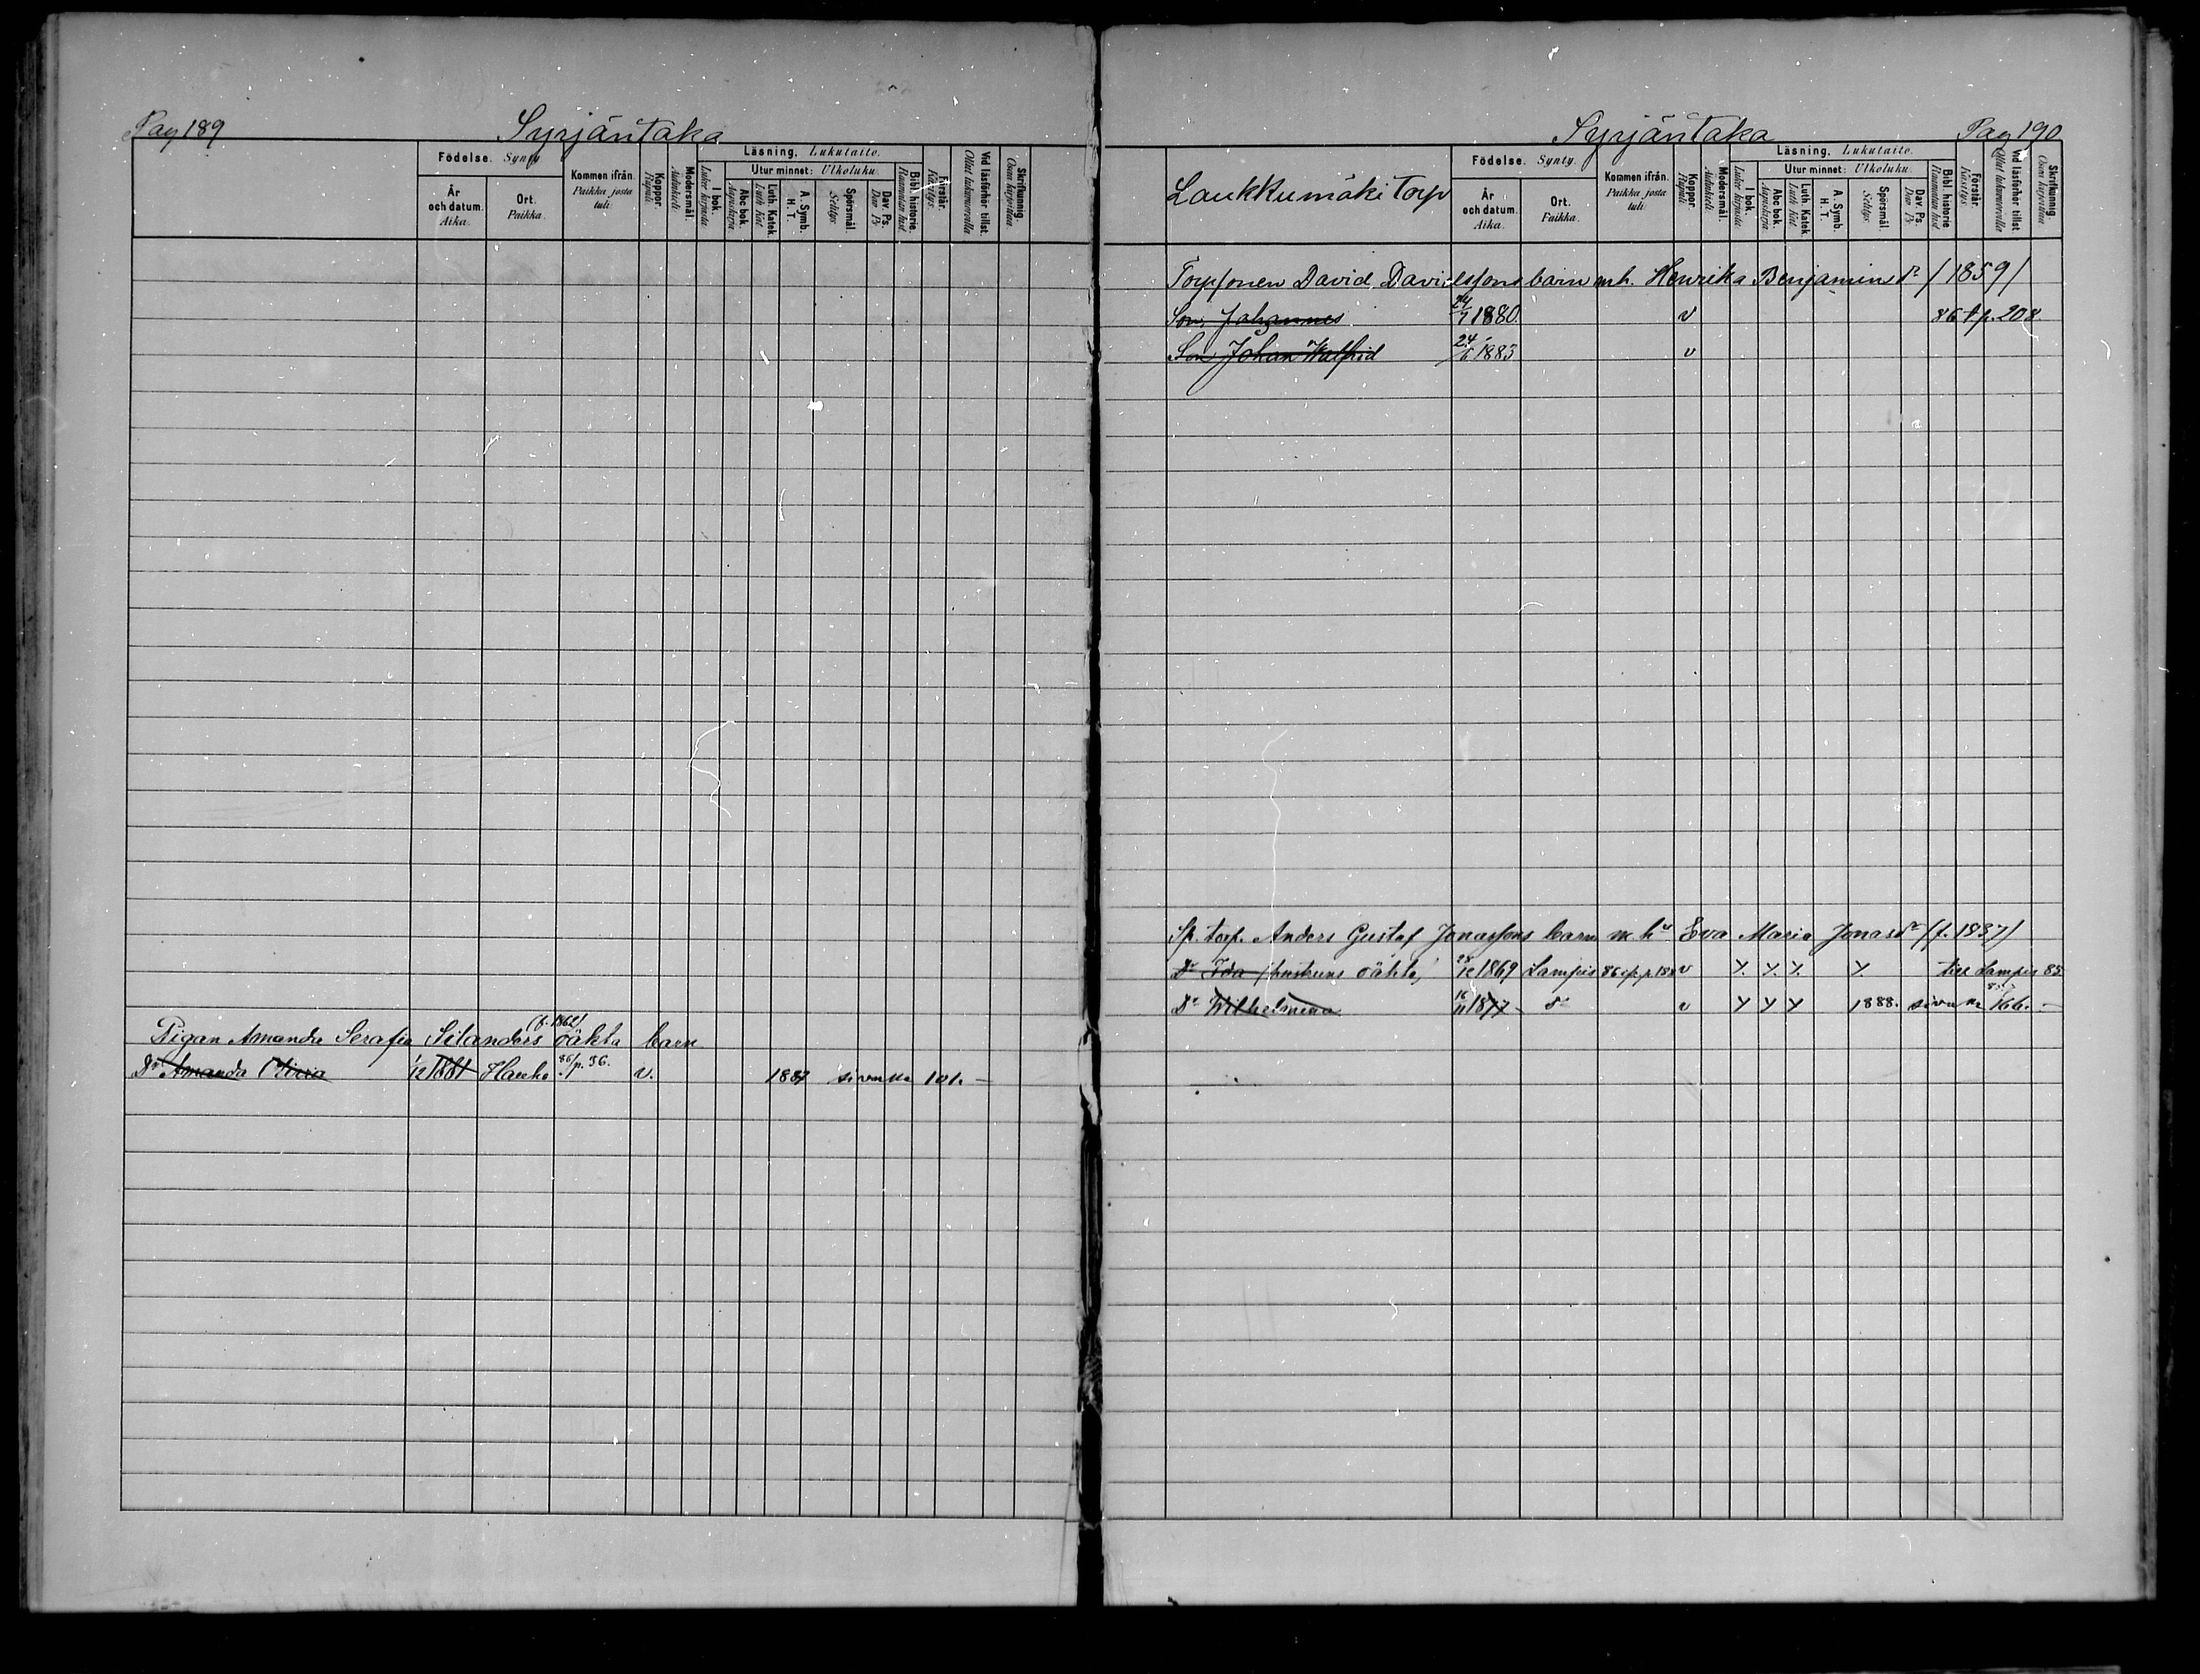 Pag 189
Syrjäntaka
Födelse. Synty
År och datum. Aika.
Ort. Paikka.
Kommen ifrån. Paikka josta tuli.
Koppor. Rupuli.
Modersmål. Äidinkieli.
Läsning, Lukutaito.
I bok. Lukee kirjasta
Utur minnet: Ulkoluku.
Abc bok. Aapiskirja
Luth. Katek. Luth Kat
A. Symb. H. T.
Spörsmål. Selitys.
Dav. Ps. Dav. Ps
Bibl. historie. Raamatun hist.
Förstår. Käsitys.
Vid läsförhör tillst. Ollut lukuvuorolla
Skrifkunnig. Osaa kirjoittaa
Pigan Amanda Serafia Silanders (f. 1862) oäkta barn
Dr Amanda Olivia 1/12 1881 Hauho 86/p. 36. v. 1887 sivulla 101. —
Syrjäntaka
Pag 190
Laukkumäki Torp
Födelse. Synty.
År och datum. Aika.
Ort. Paikka.
Kommen ifrån. Paikka josta tuli.
Koppor. Rupuli.
Modersmål. Äidinkieli.
Läsning, Lukutaito.
I bok. Lukee kirjasta
Utur minnet: Ulkoluku.
Abc bok. Aapiskirja
Luth. Katek. Luth Kat
A. Symb. H. T.
Spörsmål. Selitys.
Dav. Ps. Dav. Ps
Bibl. historie Raamatun hist
Förstår. Käsitys.
Vid läsförhör tillst. Ollut lukuvuorolla
Skrifkunnig. Osaa kirjoittaa
Torpsonen David Davidssons barn mh. Henrika Benjaminsdr /1859/
Son Johannes 24/7 1880. v 86 t p. 208
Son Johan Walfrid 24/6 1883 v
Sp. torp. Anders Gustaf Jonassons barn m. hu Eva Maria Jonasdr (f. 1837)
Dr Ida (hustruns oäkta) 28/12 1869 Lampis v till Lampis 85
Dr Wilhelmina 16/11 1877 do v 1888. sivulle 166. —